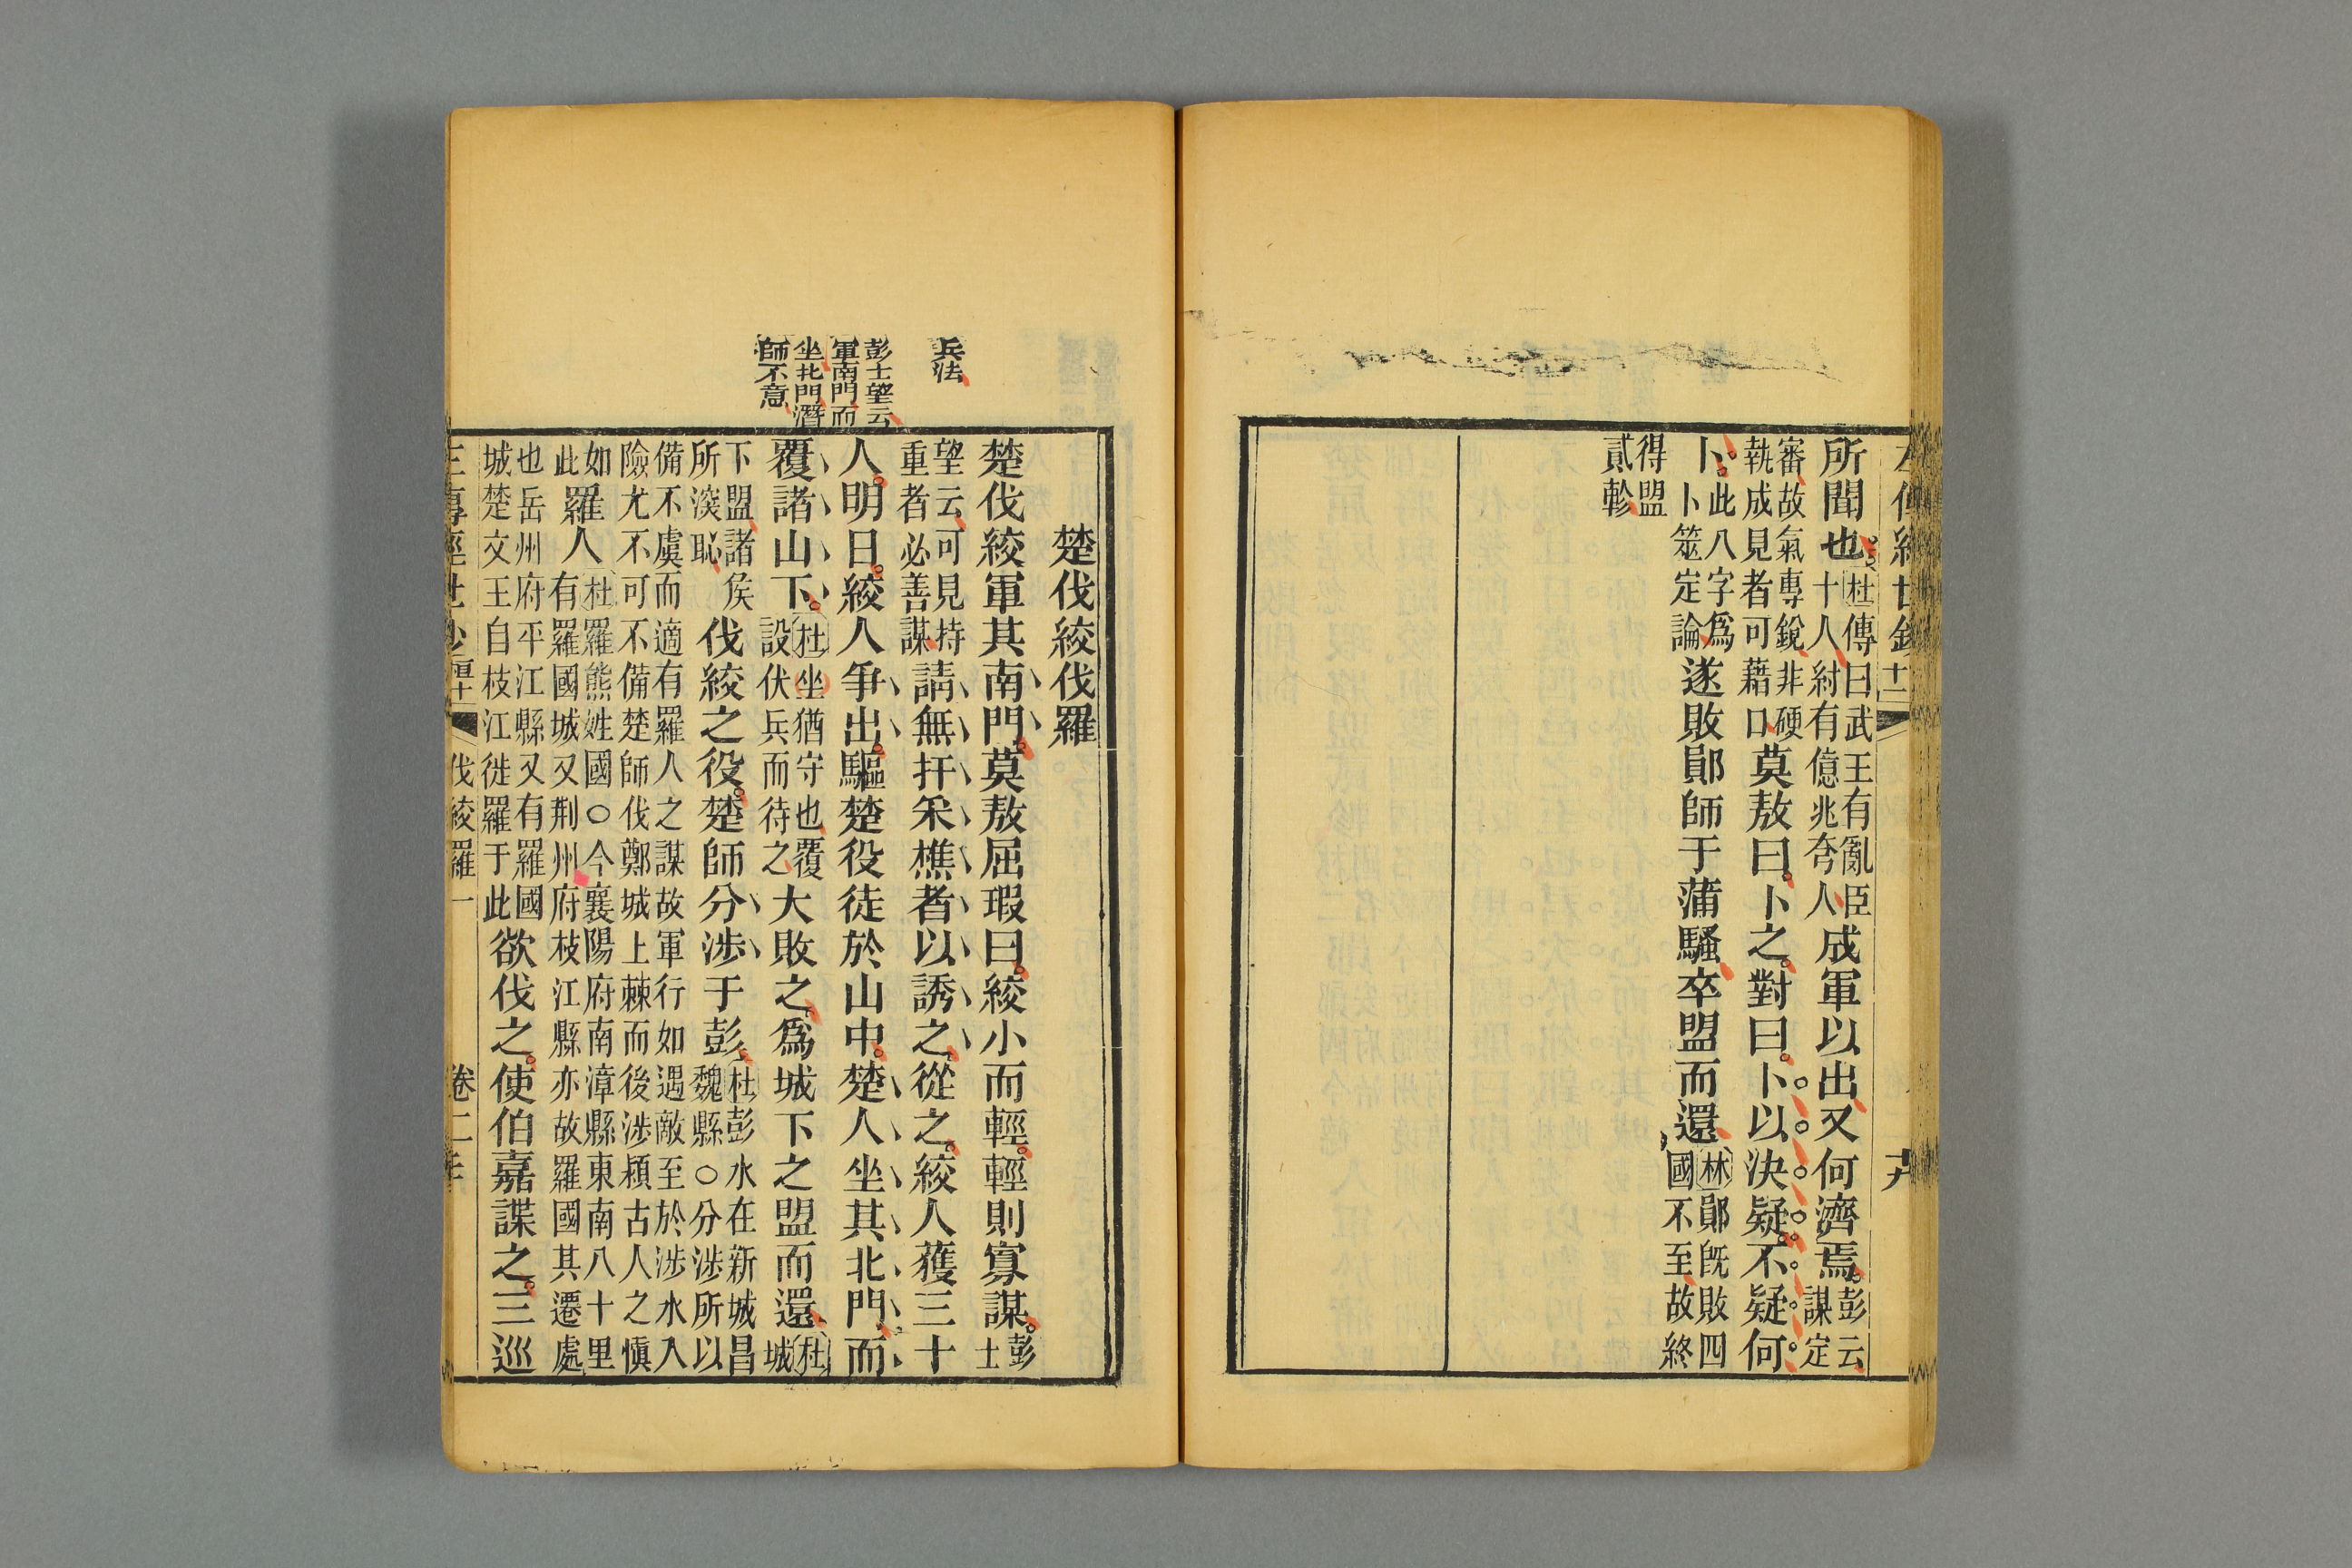 傳經世鈔 十一 十九
所聞也杜傳曰武王有亂臣十人紂有億兆夸人成軍以出又何濟焉彭云謀定
審故氣專銳非硬執成見者可藉口莫敖曰卜之對曰卜以決疑不疑何
卜此八字爲卜筮定論遂敗鄖師于蒲騷卒盟而還林鄖旣敗四國不至故終
得盟貳軫
楚伐絞伐羅
楚伐絞軍其南門莫敖屈瑕曰絞小而輕輕則寡謀彭士
望云可見持重者必善謀請無扞采樵者以誘之從之絞人獲三十
人明日絞人爭出驅楚役徒於山中楚人坐其北門而
覆諸山下杜坐猶守也覆設伏兵而待之大敗之爲城下之盟而還杜城
下盟諸侯所深恥伐絞之役楚師分涉于彭杜彭水在新城昌魏縣○分涉所以
備不虞而適有羅人之謀故軍行如遇敵至於涉水入險尤不可不備楚師伐鄭城上棘而後涉潁古人之愼
如此羅人杜羅熊姓國○今襄陽府南漳縣東南八十里有羅國城又荆州府枝江縣亦故羅國其遷處
也岳州府平江縣又有羅國城楚文王自枝江徙羅于此欲伐之使伯嘉諜之三巡
兵法
彭士望云
軍南門而
坐北門潛
師不意
伐絞羅一 卷二